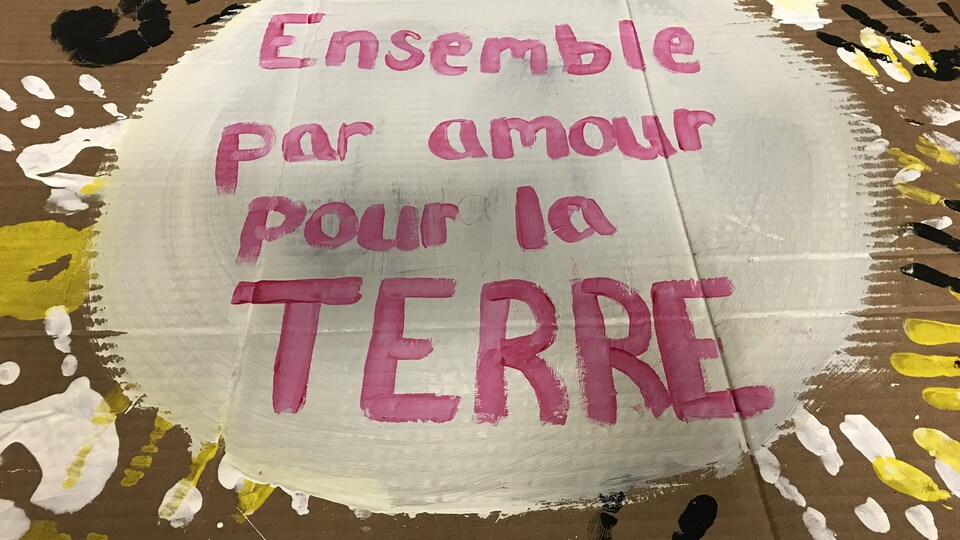 Ensemble
par amour
pour la
TERRE